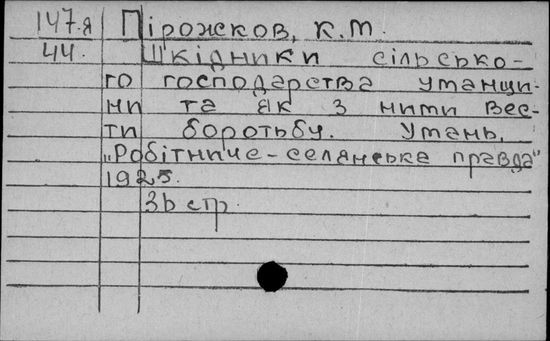 147.я Пірожсков, К.М.
44. Шкідники сільсько-
го господарства Уманщи-
ни та як з ними вес-
ти боротьбу. Умань,
„Робітниче-селянська правда"
1925.
36 стр.